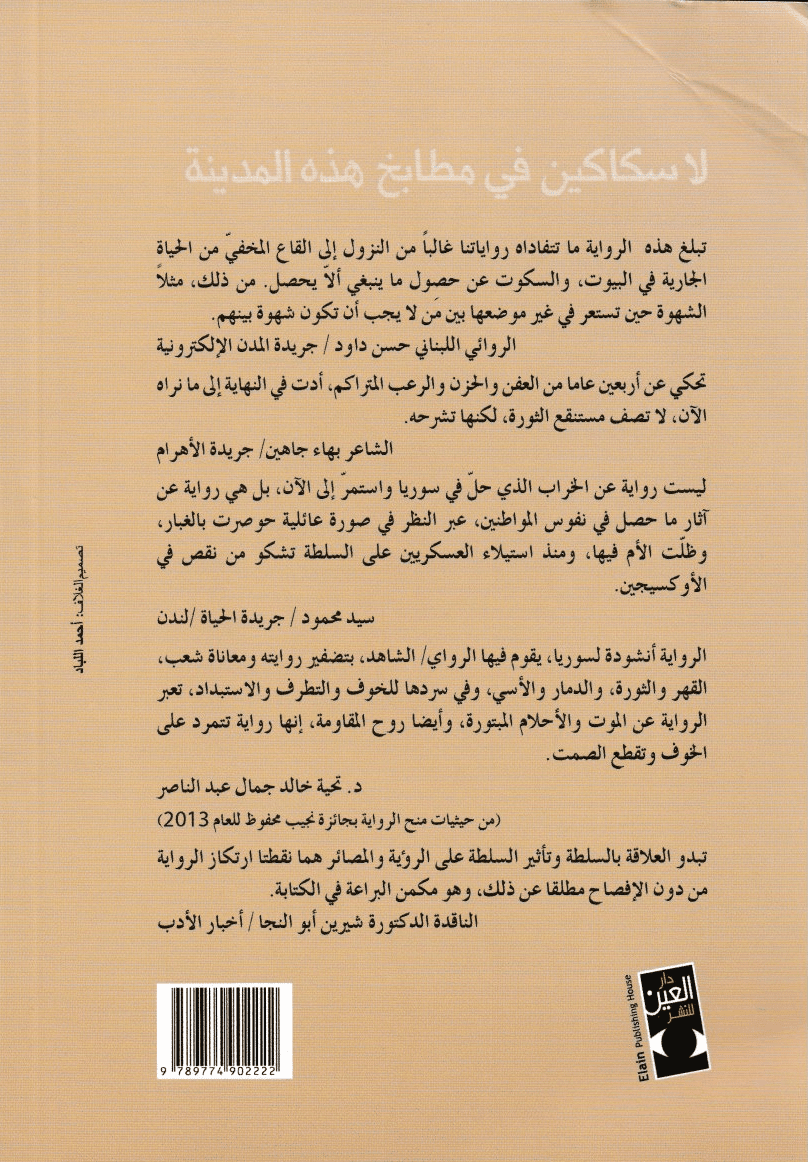 لا سكاكين في مطابخ هذه المدينة
تبلغ هذه الرواية ما تتفاداه رواياتنا غالباً من النزول إلى القاع المخفيّ من الحياة
الجارية في البيوت، والسكوت عن حصول ما ينبغي ألاّ يحصل. من ذلك، مثلاً
الشهوة حين تستعر في غير موضعها بين مَن لا يجب أن تكون شهوة بينهم.
الروائي اللبناني حسن داود / جريدة المدن الإلكترونية
تحكي عن أربعين عاما من العفن والحزن والرعب المتراكم، أدت في النهاية إلى ما نراه
الآن، لا تصف مستنقع الثورة، لكنها تشرحه.
الشاعر بهاء جاهين/ جريدة الأهرام
ليست رواية عن الخراب الذي حلّ في سوريا واستمرّ إلى الآن، بل هي رواية عن
آثار ما حصل في نفوس المواطنين، عبر النظر في صورة عائلية حوصرت بالغبار،
وظلّت الأم فيها، ومنذ استيلاء العسكريين على السلطة تشكو من نقص في
الأوكسيجين.
سيد محمود / جريدة الحياة /لندن
الرواية أنشودة لسوريا، يقوم فيها الرواي/ الشاهد، بتضفير روايته ومعاناة شعب،
القهر والثورة، والدمار والأسي، وفي سردها للخوف والتطرف والاستبداد، تعبر
الرواية عن الموت والأحلام المبتورة، وأيضا روح المقاومة، إنها رواية تتمرد على
الخوف وتقطع الصمت.
د. تحية خالد جمال عبد الناصر
(من حيثيات منح الرواية بجائزة نجيب محفوظ للعام 2013)
تبدو العلاقة بالسلطة وتأثير السلطة على الرؤية والمصائر هما نقطتا ارتكاز الرواية
من دون الإفصاح مطلقا عن ذلك، وهو مكمن البراعة في الكتابة.
الناقدة الدكتورة شيرين أبو النجا / أخبار الأدب
تصميم الغلاف: أحمد اللباد
دار
العين
للنشر
Elain Publishing House
9 789774 902222